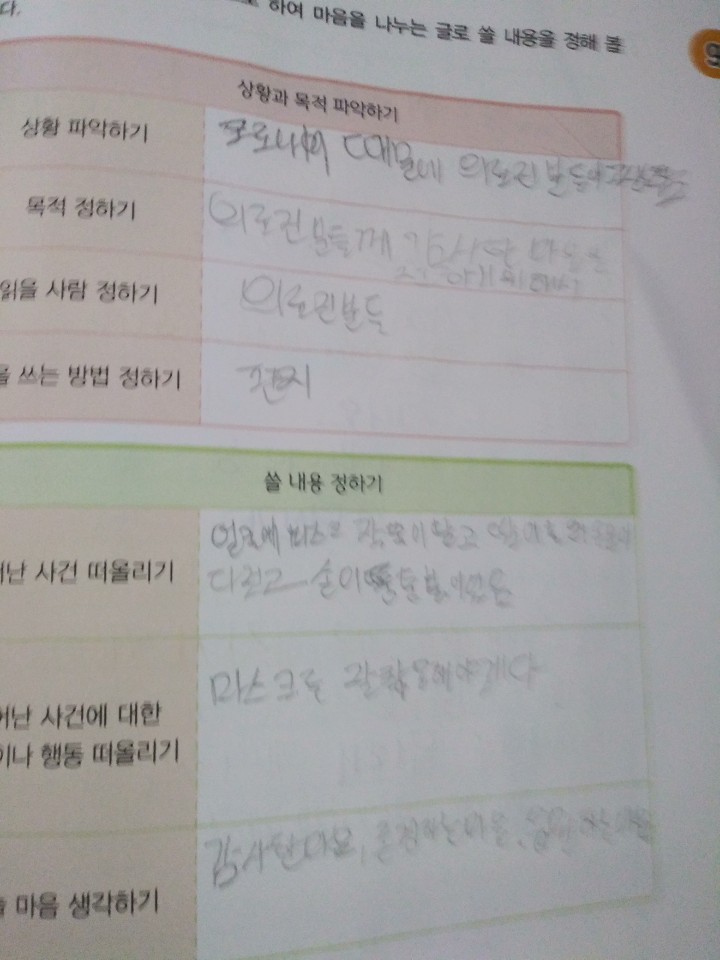 다.
하여 마음을 나누는 글로 쓸 내용을 정해 볼
상황과 목적 파악하기
상황 파악하기 코로나 때문에 의료진분들이
목적 정하기 의료진분들께 감사한 마음을
전하기 위해서
읽을 사람 정하기 의료진분들
쓰는 방법 정하기 편지
쓸 내용 정하기
얼굴에 마스크 자국이
난 사건 떠올리기 손이
마스크를 잘 착용해야겠다
난 사건에 대한
이나 행동 떠올리기
감사한 마음, 존경하는 마음,
마음 생각하기